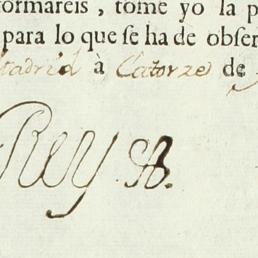 formareis, tome yo la p
para lo que se ha de obser
Madrid à Catorze de
Rey